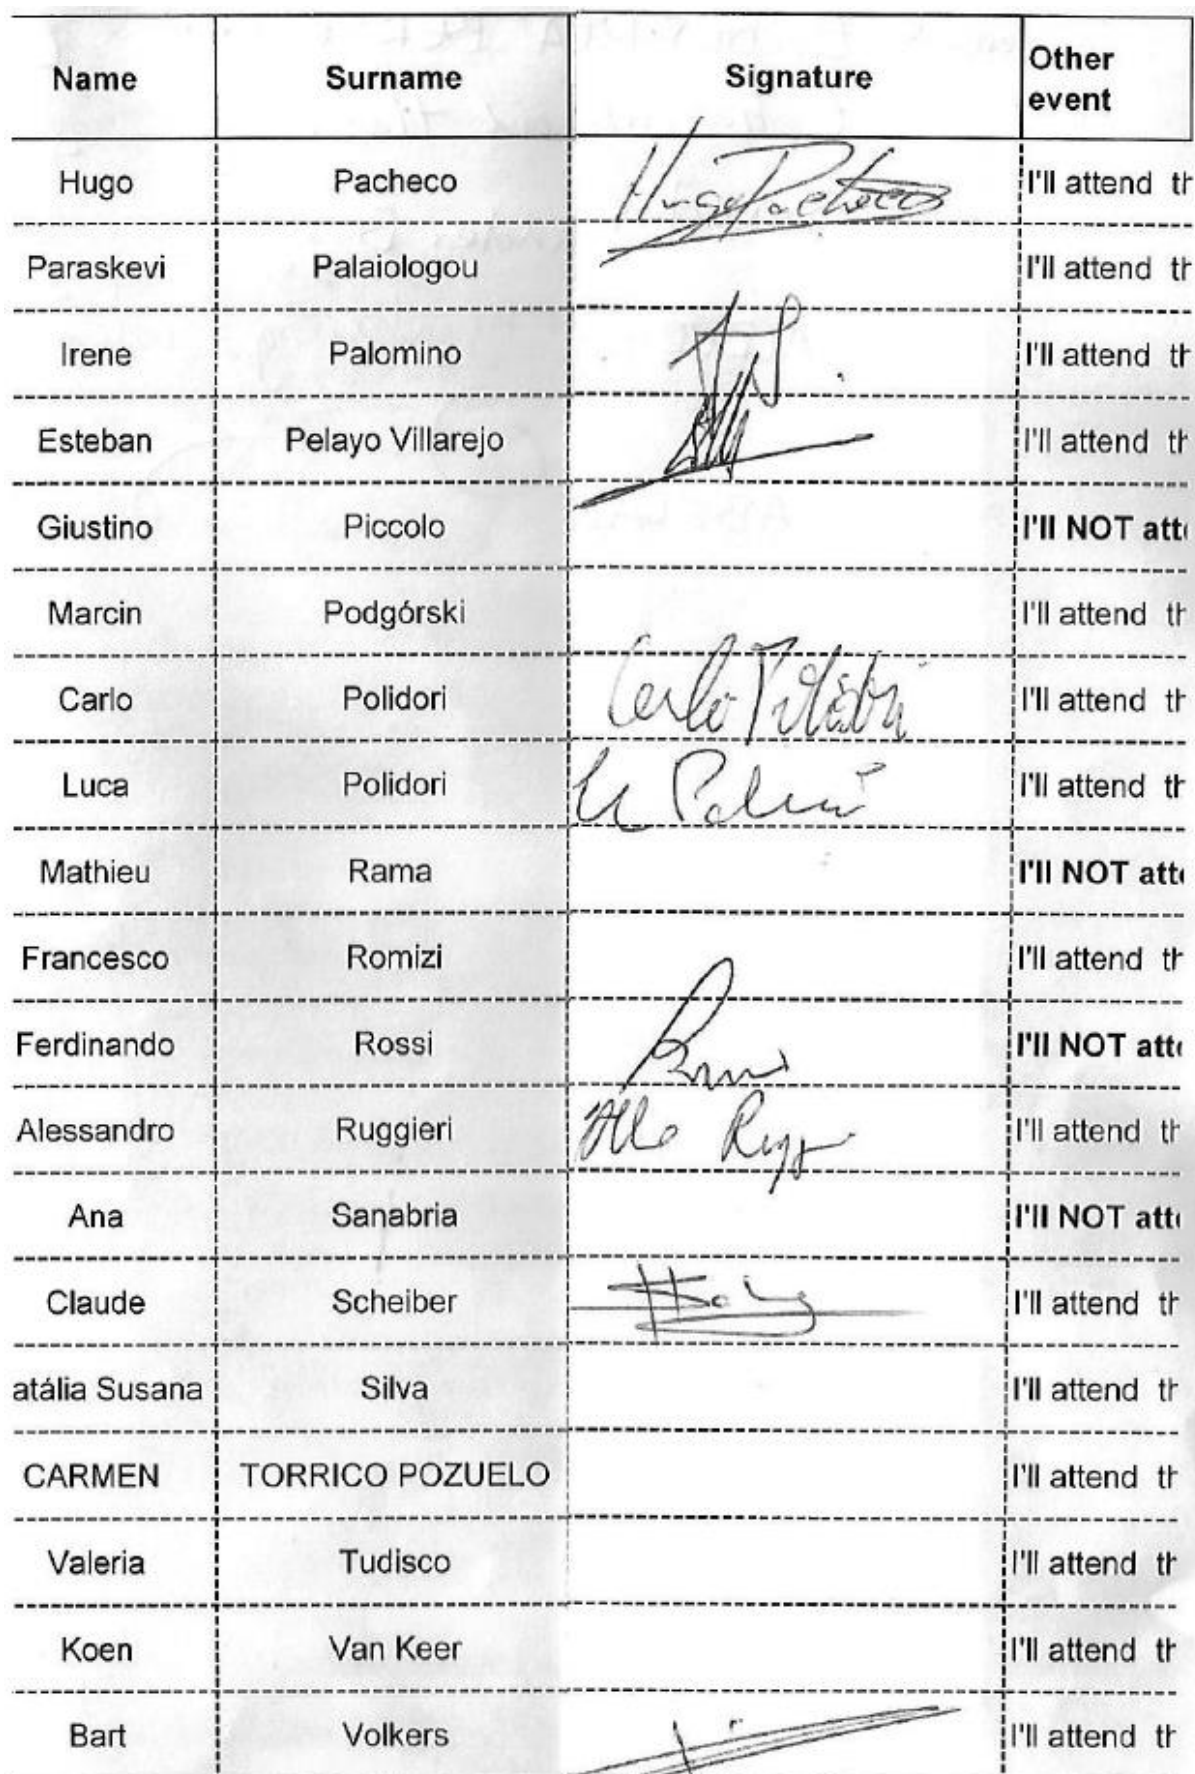 Name Surname Signature Other event
Hugo Pacheco Hugo Pacheco I'll attend th
Paraskevi Palaiologou I'll attend th
Irene Palomino I'll attend th
Esteban Pelayo Villarejo I'll attend th
Giustino Piccolo I'll NOT atte
Marcin Podgórski I'll attend th
Carlo Polidori Carlo Polidori I'll attend th
Luca Polidori I'll attend th
Mathieu Rama I'll NOT atte
Francesco Romizi I'll attend th
Ferdinando Rossi I'll NOT atte
Alessandro Ruggieri I'll attend th
Ana Sanabria I'll NOT atte
Claude Scheiber I'll attend th
atália Susana Silva I'll attend th
CARMEN TORRICO POZUELO I'll attend th
Valeria Tudisco I'll attend th
Koen Van Keer I'll attend th
Bart Volkers I'll attend th